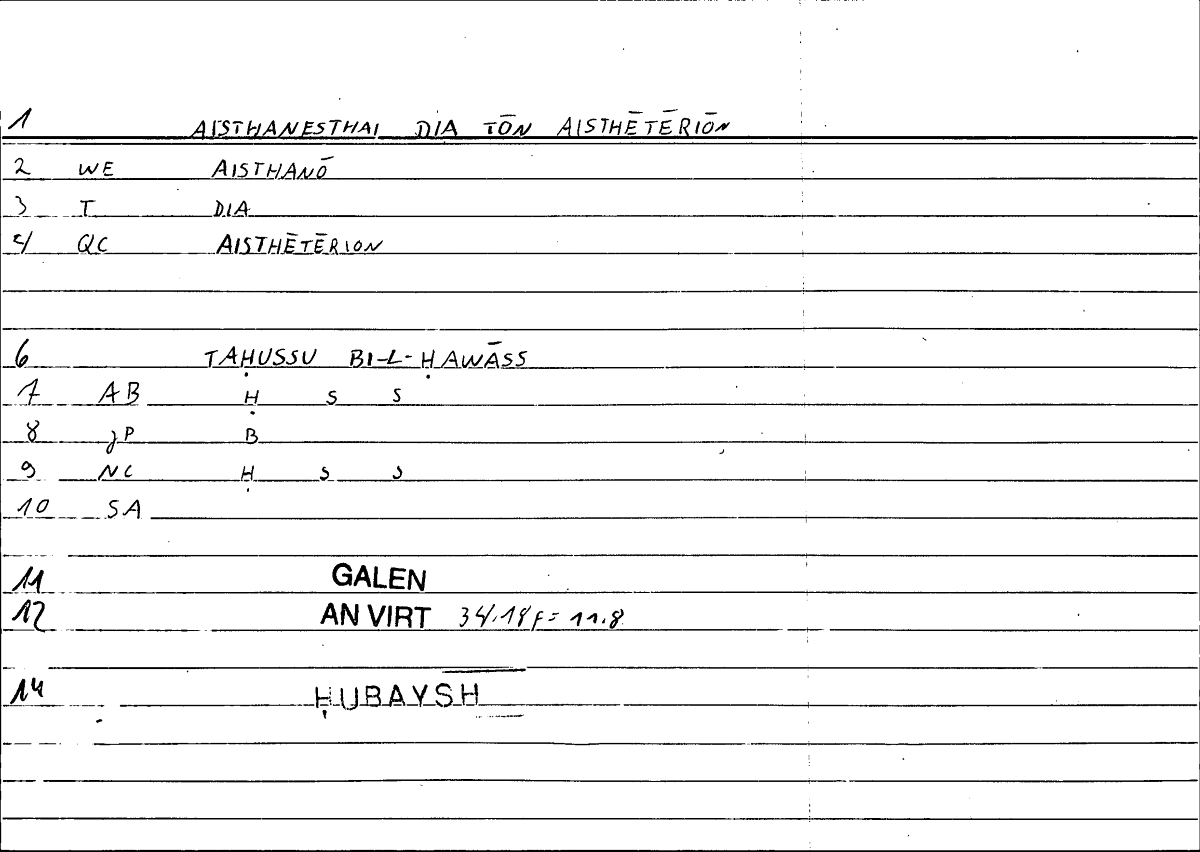 1 AISTHANESTHAI DIA TŌN AISTHĒTĒRIŌN
2 WE AISTHANŌ
3 T DIA
4 QC AISTHĒTĒRION
6 TAḤUSSU BI-L-ḤAWĀSS
7 AB Ḥ S S
8 JP B
9 NC Ḥ S S
10 SA
11 GALEN
12 AN VIRT 34,18f = 11.8
14 ḤUBAYSH